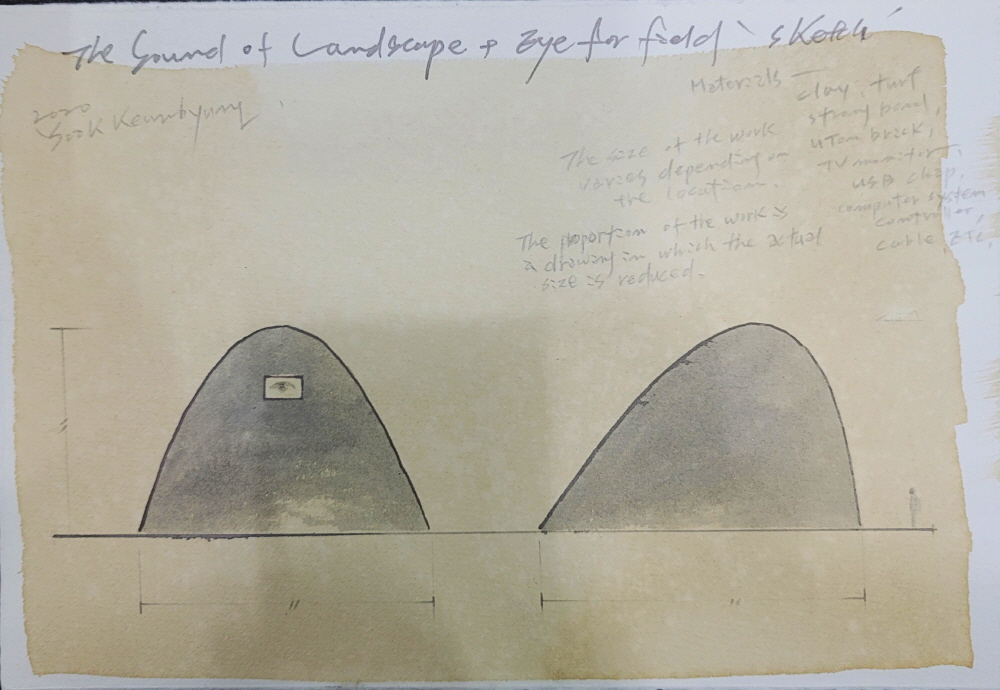 The Sound of Landscape + Eye for field `sketch´
2020
Sook Keun byung
Materials
clay, turf
strong bond,
brick,
TV monitor,
USB chip,
computer system
controller,
cable, ETC,
The size of the work
varies depending on
the location.
The proportion of the work is
a drawing in which the actual
size is reduced.